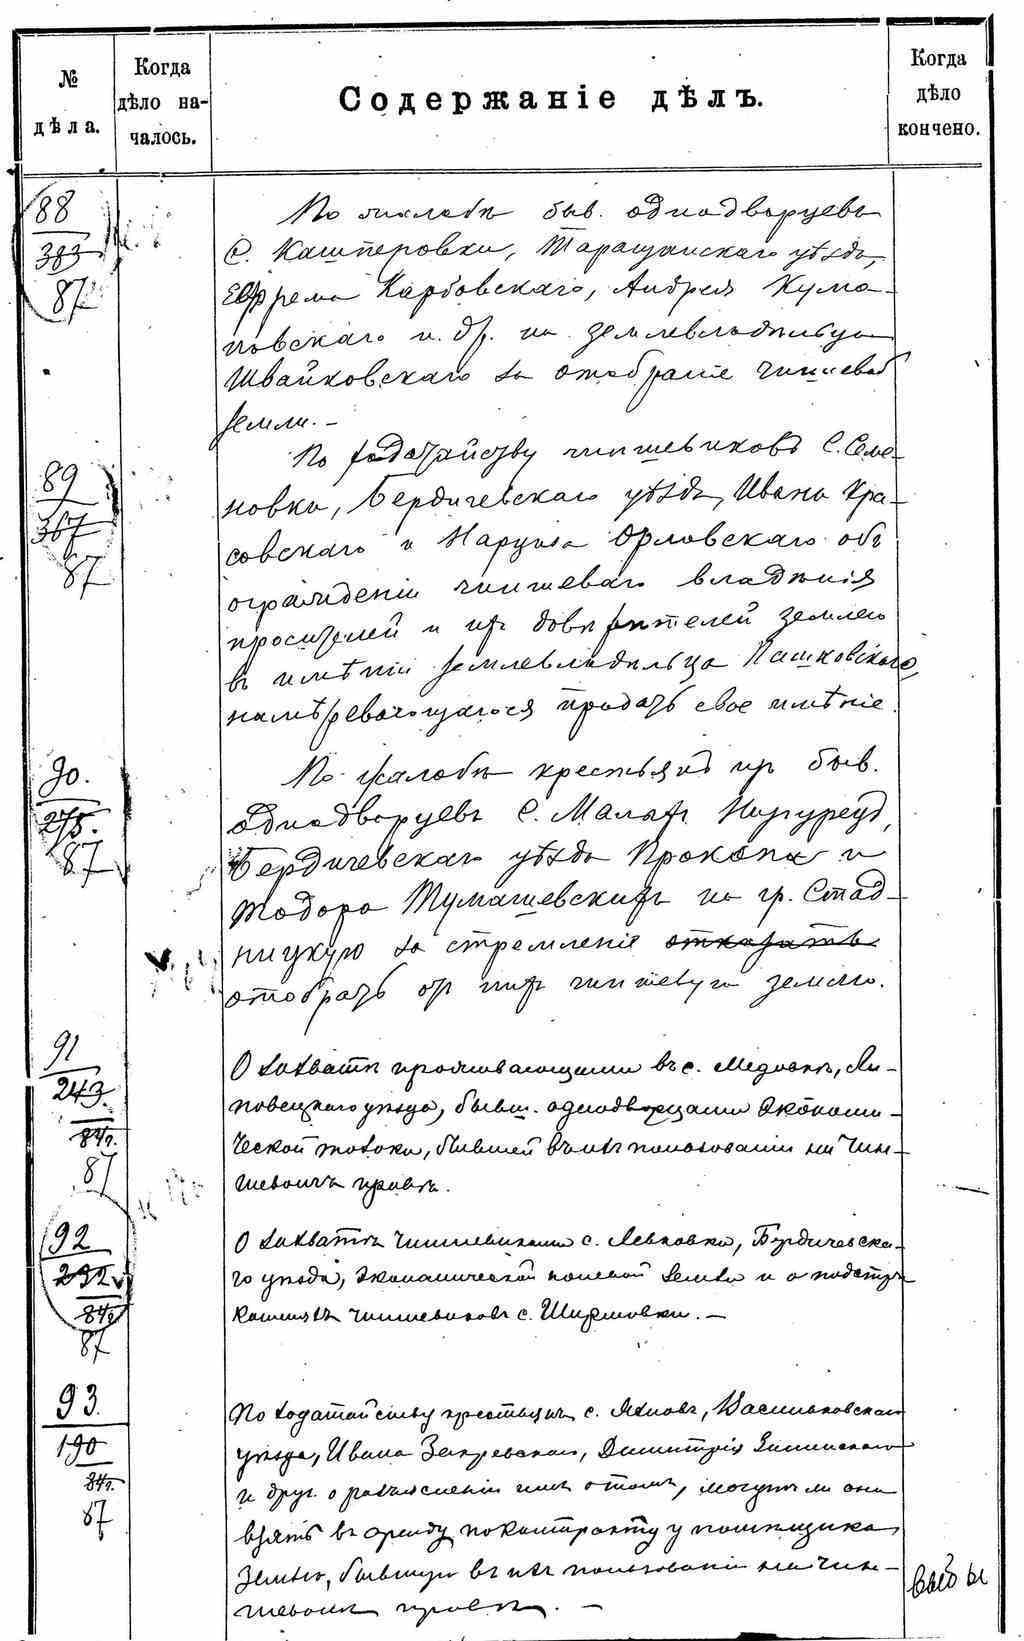 №
дѣла.
Когда
дѣло на-
чалось.
Содержаніе дѣлъ.
Когда
дѣло
кончено.
88
383
87
По жалобѣ быв. однодворцевъ
с. Кашперовки, Таращанскаго уѣзда,
Ефрема Карбовскаго, Андрея Кума-
новскаго и др. на землевладѣльца
Швайковскаго за отобраніе чиншевой
земли.-
89
367
87
По ходатайству чиншевиковъ с. Семе-
новки, Бердичевскаго уѣзда, Ивана Кра-
совскаго и Нарциза Орловскаго объ
огражденіи чиншеваго владѣнія
просителей и ихъ довѣрителей землею
въ имѣніи землевладѣльца Пашковскаго,
намѣревающагося продать свое имѣніе.
90.
275.
87
По жалобѣ крестьянъ изъ быв.
однодворцевъ с. Малыхъ Низгурецъ,
Бердичевскаго уѣзда Прокопа и
Тодора Тумашевскихъ на гр. Стад-
ницкую за стремленіе отказать
отобрать отъ нихъ чиншевую землю.
91
243.
84г.
87
О захватѣ проживающими въ с. Медовкѣ, Ли-
повецкаго уѣзда, бывш. однодворцами экономи-
ческой толоки, бывшей въ ихъ пользованіи на чин-
шевомъ правѣ.
92
232
84г
87
О захватѣ чиншевиками с. Левковки, Бердичевска-
го уѣзда, экономической полевой земли и о подстре-
кательствѣ чиншевиковъ с. Ширмовки.-
93.
190
84г.
87
По ходатайству крестьянъ с. Яхновъ, Васильковскаго
уѣзда, Ивана Закревскаго, Димитрія Зилинскаго
и друг. о разъясненіи имъ о томъ, могутъ ли они
взять въ аренду по контракту у помѣщика
землю, бывшую въ ихъ пользованіи на чин-
шевомъ правѣ. -